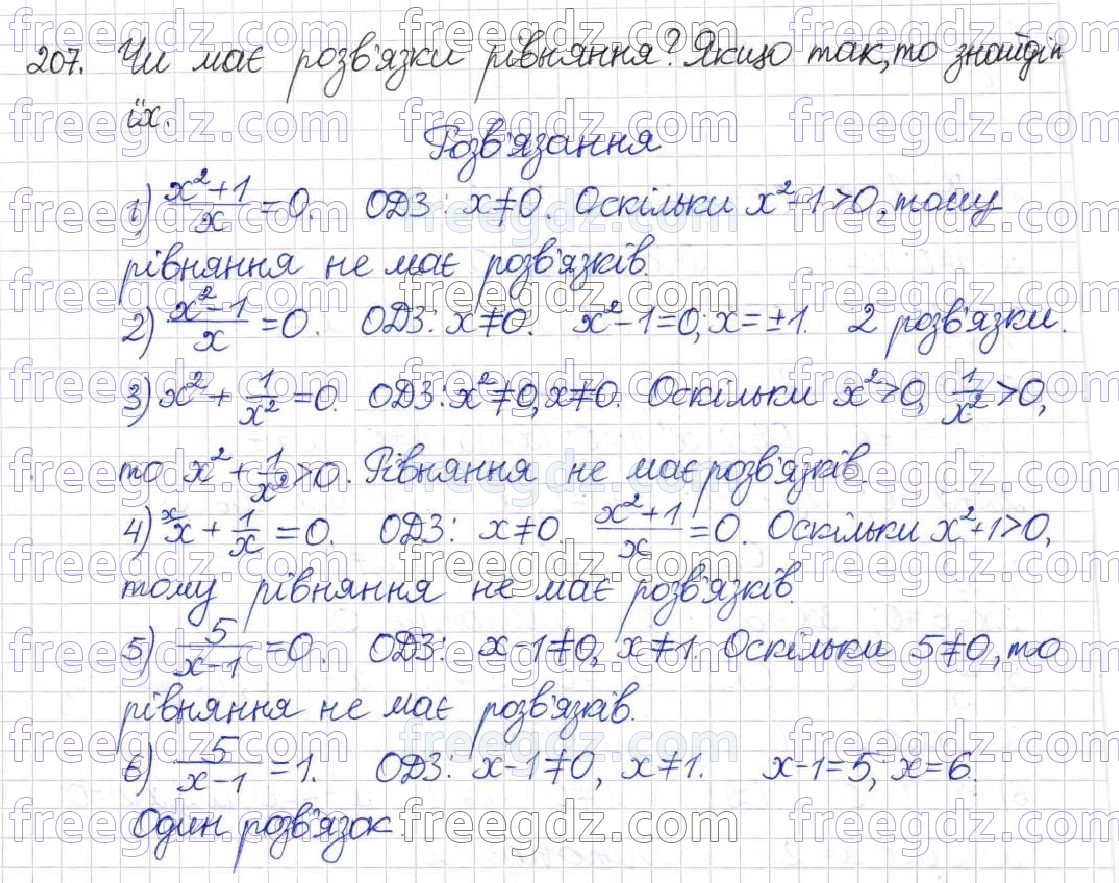 207. Чи має розв'язки рівняння? Якщо так, то знайдіть
їх.
Розв'язання
1) (x²+1)/x = 0. ОДЗ: x≠0. Оскільки x²+1>0, тому
рівняння не має розв'язків.
2) (x²-1)/x = 0. ОДЗ: x≠0. x²-1=0; x=±1. 2 розв'язки.
3) x² + 1/x² = 0. ОДЗ: x²≠0, x≠0. Оскільки x²>0, 1/x²>0,
то x² + 1/x²>0. Рівняння не має розв'язків.
4) ˣx + 1/x = 0. ОДЗ: x≠0. (x²+1)/x = 0. Оскільки x²+1>0,
тому рівняння не має розв'язків.
5) 5/(x-1) = 0. ОДЗ: x-1≠0, x≠1. Оскільки 5≠0, то
рівняння не має розв'язків.
6) 5/(x-1) = 1. ОДЗ: x-1≠0, x≠1. x-1=5; x=6.
Один розв'язок.
freegdz.com